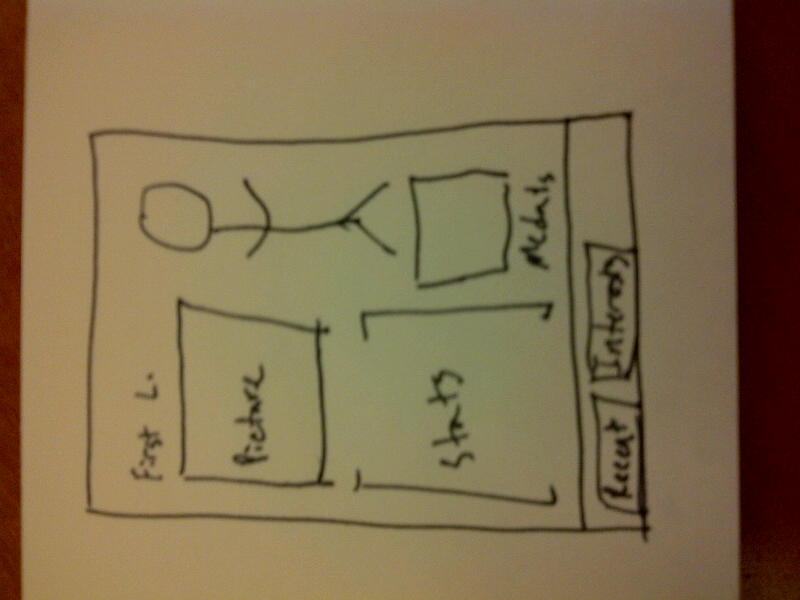 First L.
Picture
Stats
Medals
Recent
Interests